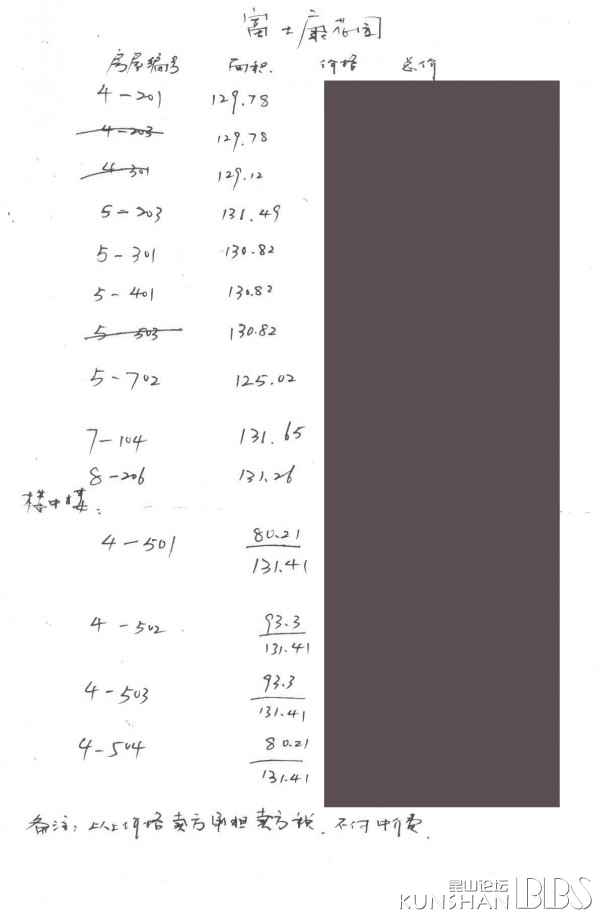 富士康花园
房屋编号 面积. 价格 总价
4-201 129.78
4-203 129.78
4-301 129.12
5-203 131.49
5-301 130.82
5-401 130.82
5-503 130.82
5-702 125.02
7-104 131.65
8-206 131.26
楼中楼:
4-501 80.21
131.41
4-502 93.3
131.41
4-503 93.3
131.41
4-504 80.21
131.41
备注: 以上价格卖方承担卖方税. 不付中介费.
昆山论坛
KUNSHAN BBS